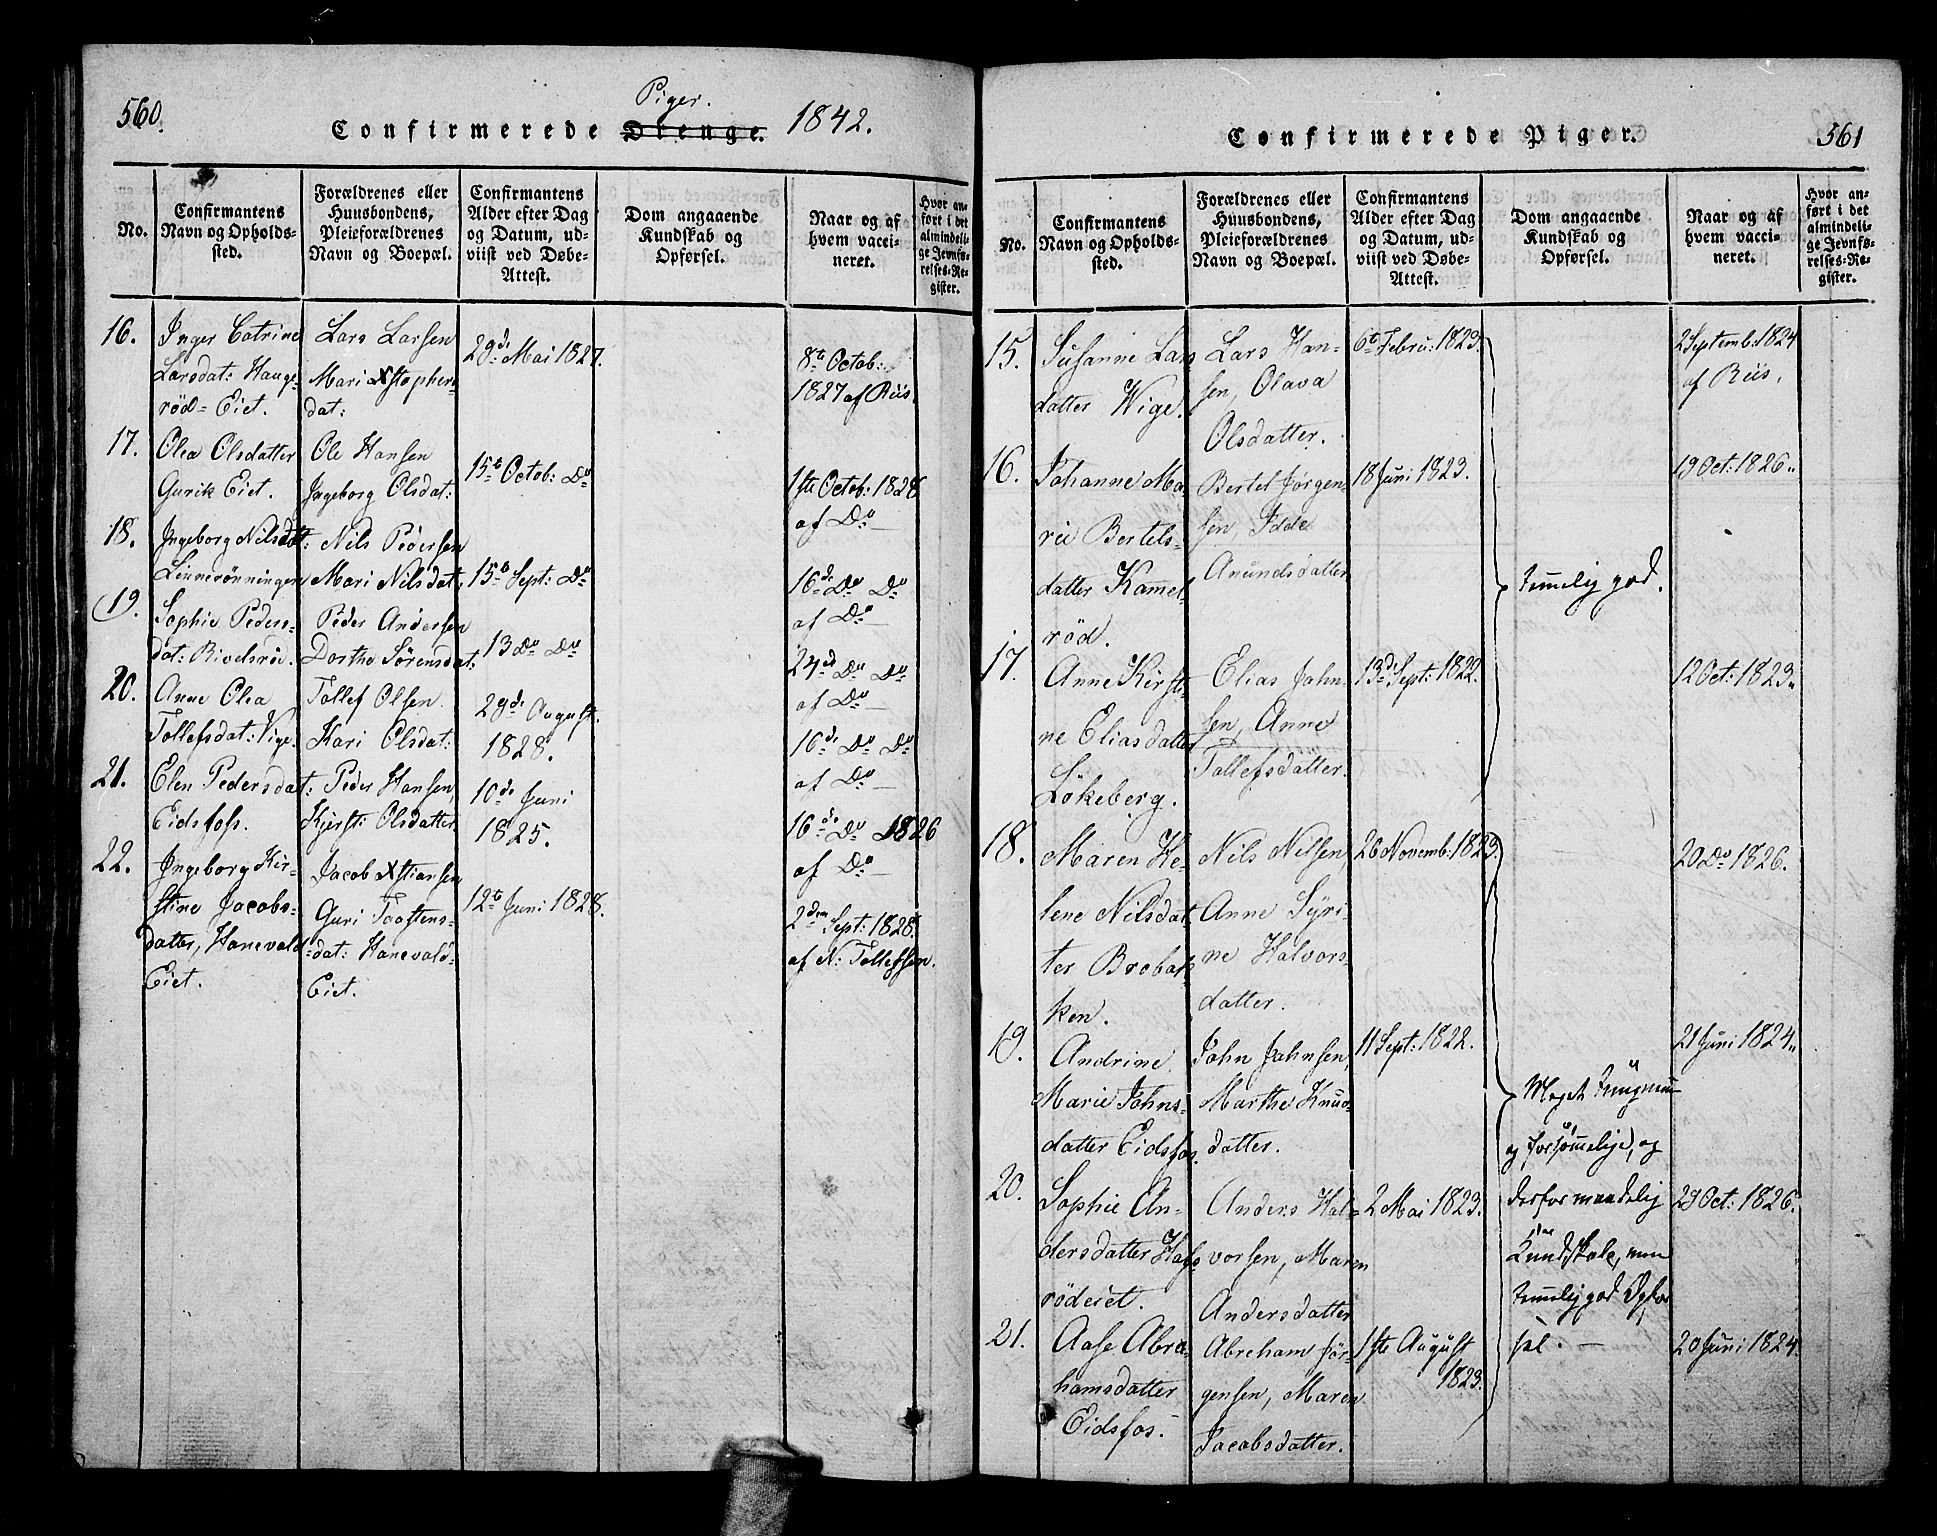 560.
Piger.
Confirmerede Drenge. 1842.
No.
Confirmantens
Navn og Opholds-
sted.
Forældrenes eller
Huusbondens,
Pleieforældrenes
Navn og Boepæl.
Confirmantens
Alder efter Dag
og Datum, ud-
viist ved Døbe-
Attest.
Dom angaaende
Kundskab og
Opførsel.
Naar og af
hvem vacci-
neret.
Hvor an-
ført i det
almindeli-
ge Jevnfø-
relses-Re-
gister.
16.
Inger Catrine
Larsdat: Hauge-
rød-Eiet.
Lars Larsen
Mari Xstophers
dat:
29de Mai 1827.
8t Octob:
1827 af Riis.
17.
Olea Olsdatter
Gurik Eiet.
Ole Hansen
Ingeborg Olsdat:
15t Octob: Do
1ste Octob: 1828
af Do
18.
Ingeborg Nilsdat:
Linnerønningen
Nils Pedersen
Mari Nilsdat.
15t Sept: Do
16de Do Do
af Do
19.
Sophie Peders-
dat: Rivelsrø.
Peder Andersen
Dorthe Sørensdat:
13 Do Do
24de Do Do
af Do
20.
Anne Olea
Tollefsdat: Vige.
Tollef Olsen.
Kari Olsdat:
29de August.
1828.
16de Do Do
af Do
21.
Elen Pedersdat:
Eidsfoss.
Peder Hansen,
Kjerst: Olsdatter
10de Juni
1825.
16de Do 1826
af Do
22.
Ingeborg Kir-
stine Jacobs-
datter, Hanevold
Eiet.
Jacob Xstiansen
Guri Taastens-
dat: Hanevald-
Eiet.
12t Juni 1828.
2den Sept: 1828.
af N: Tollefsen.
561
Confirmerede Piger.
No.
Confirmantens
Navn og Opholds-
sted.
Forældrenes eller
Huusbondens,
Pleieforældrenes
Navn og Boepæl.
Confirmantens
Alder efter Dag
og Datum, ud-
viist ved Døbe-
Attest.
Dom angaaende
Kundskab og
Opførsel.
Naar og af
hvem vacci-
neret.
Hvor an-
ført i det
almindeli-
ge Jevnfø-
relses-Re-
gister.
15.
Susanne Lars
datter Wige.
Lars Han-
sen, Olava
Olsdatter.
6t Febru: 1823.
2 Septemb: 1824
af Riis.
16.
Johanne Ma-
rie Bertels-
datter Kamel-
rød.
Bertel Jørgen-
sen, Idde
Anundsdatter
18 Juni 1823.
temmelig god.
19 Oct: 1826.
17.
Anne Kirsti-
ne Eliasdatter
Løkeberg.
Elias Jahn-
sen, Anne
Tollefsdatter.
13de Sept: 1822.
12 Oct: 1823.
18.
Maren He-
lene Nilsdat-
ter Brobak-
ken.
Nils Nilsen,
Anne Syri-
ne Halvors-
datter.
26 Novemb: 1823.
20 Do 1826.
19.
Andrine
Marie Johns-
datter Eidsfos.
John Jahnsen,
Marthe Knud-
datter.
11 Sept: 1822.
21 Juni 1824.
Meget
og forsømmelige, og
derfor maadelig
Kundskab, men
temmelig god Opfør
sel.
20.
Sophie An-
dersdatter Hals
rødeiet.
Anders Hal-
vorsen, Maren
Andersdatter
2 Mai 1823.
29 Oct: 1826.
21.
Aase Abra-
hamsdatter
Eidsfos.
Abreham Jør-
gensen, Maren
Jacobsdatter.
1ste August
1823.
20 Juni 1824.